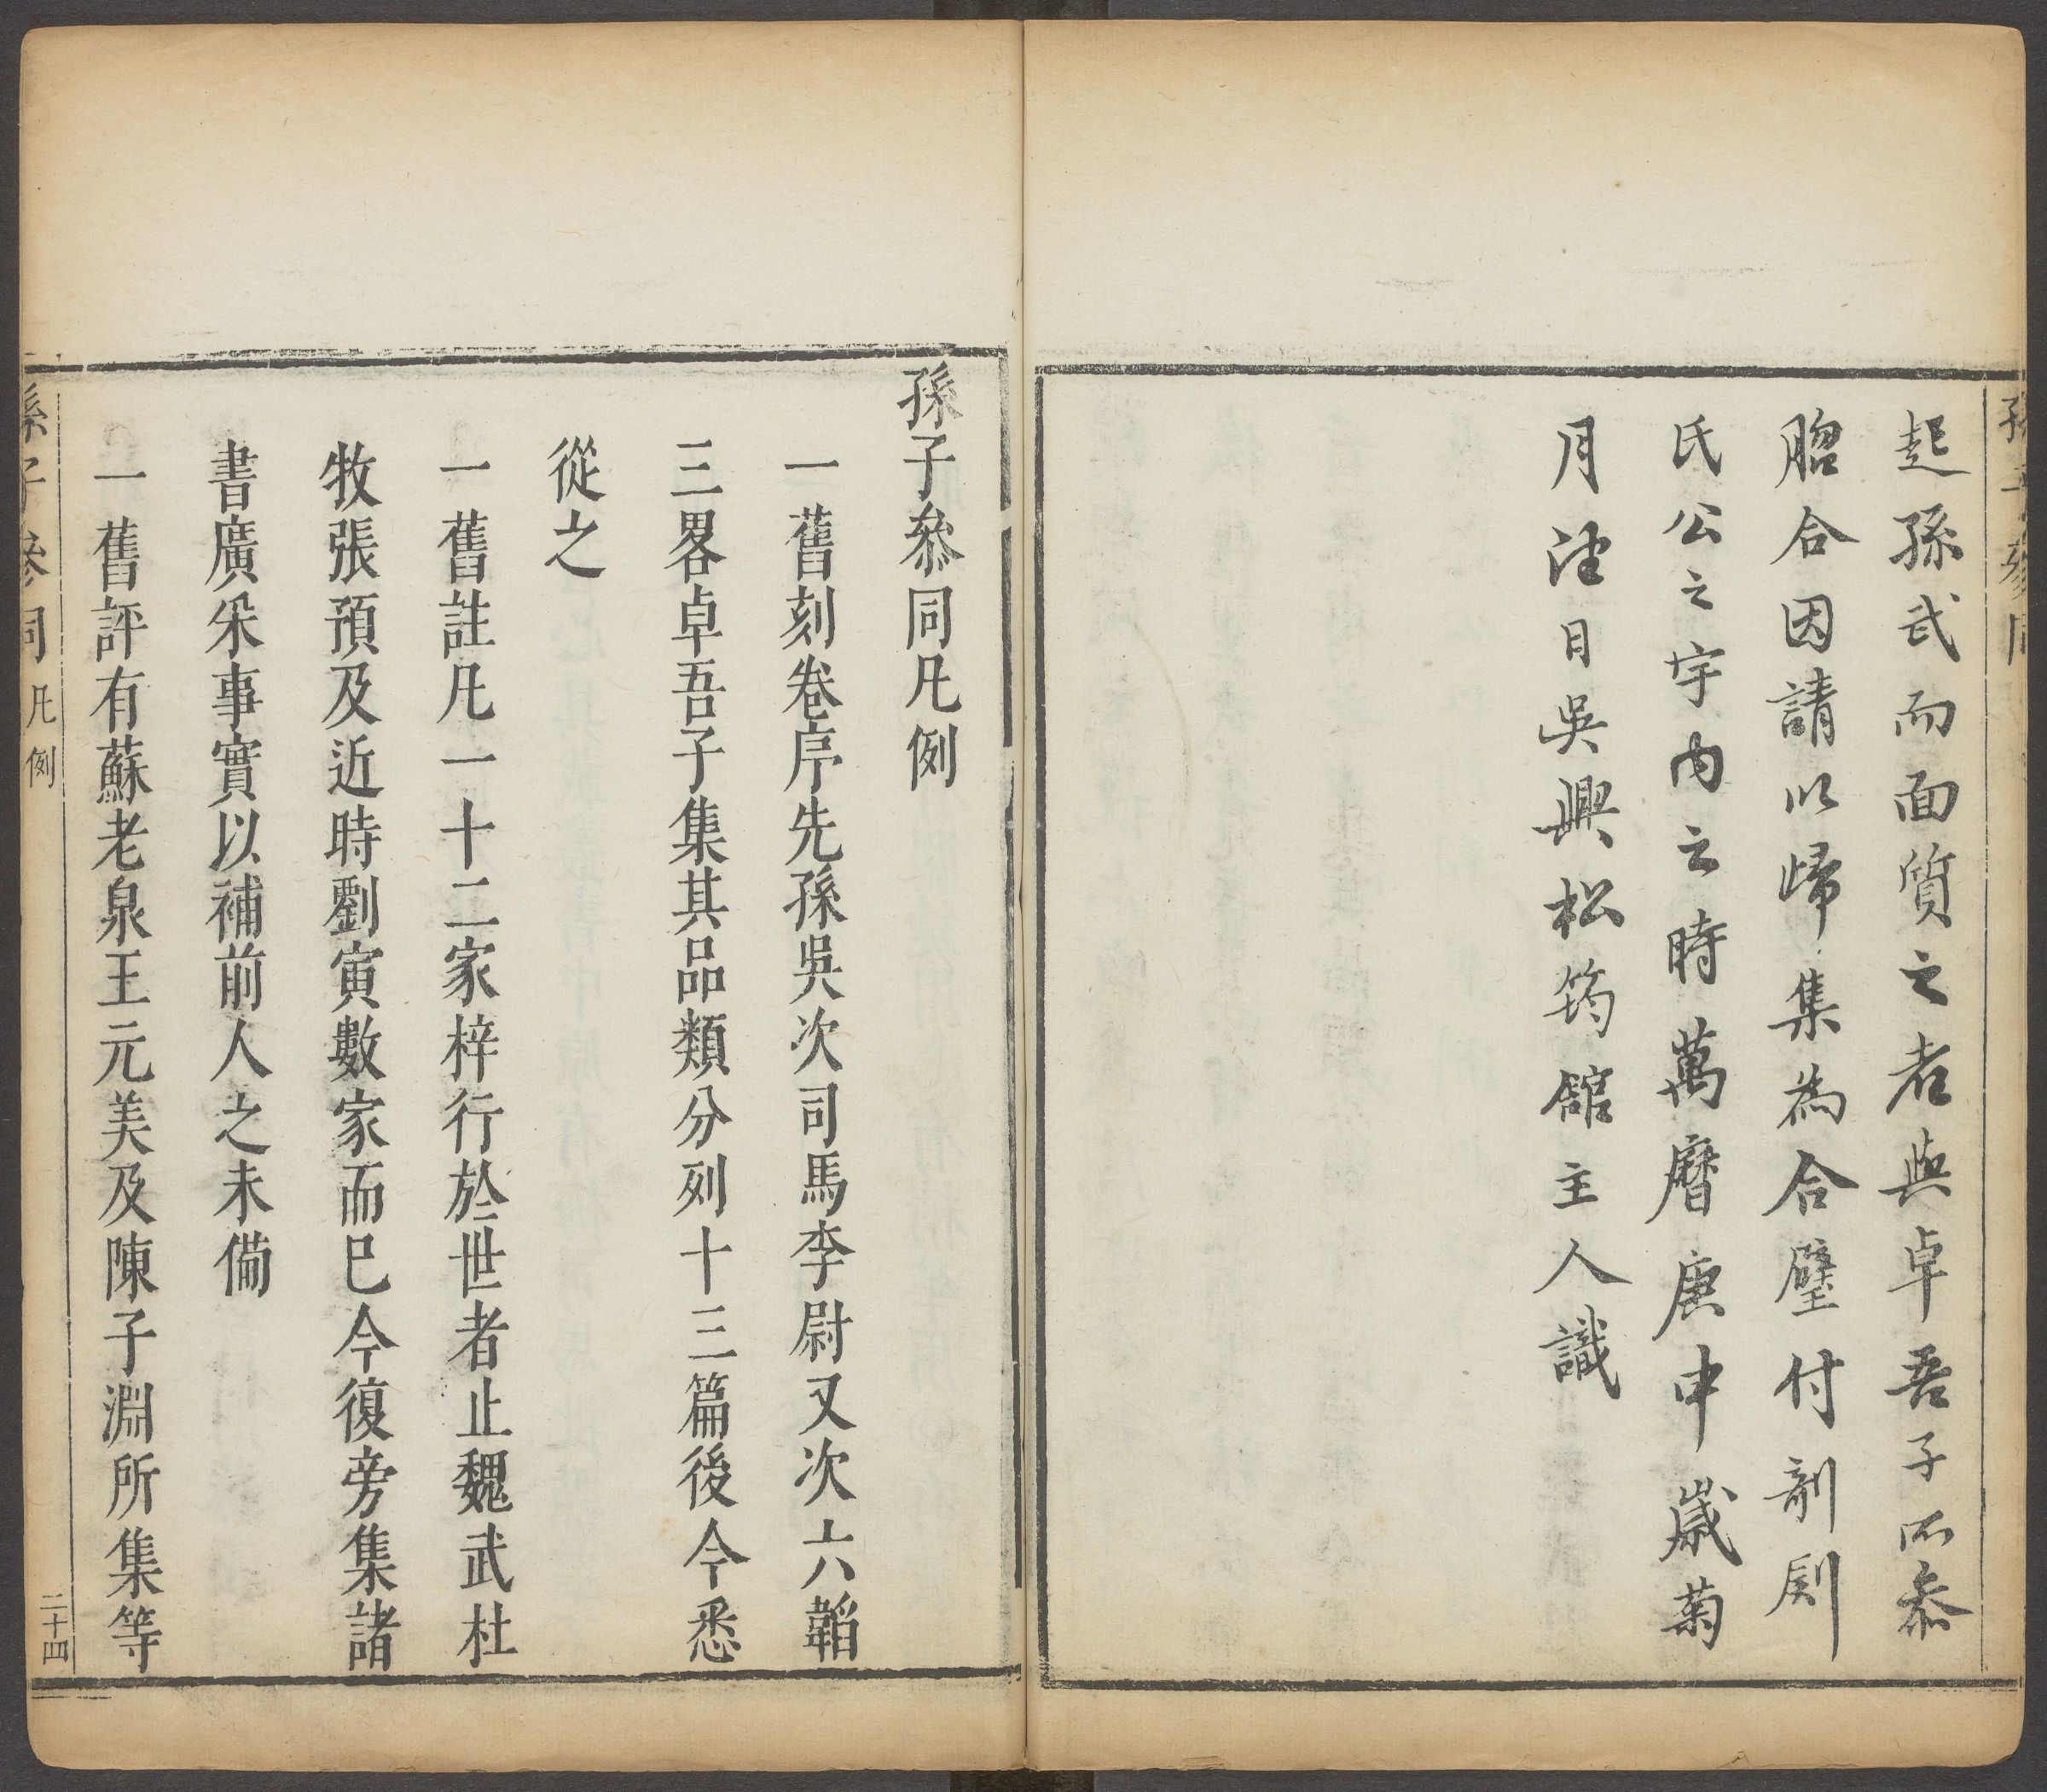 起孫武而面質之者與卓吾子不叅
脗合因請以歸集為合璧付剞劂
氏公之宇内之時萬曆庚申歲菊
月望日吳興松筠館主人識
孫子叅同凡例
一舊刻卷序先孫吳次司馬李尉又次六韜
三畧卓吾子集其品類分列十三篇後今悉
從之
一舊註凡一十二家梓行於世者止魏武杜
牧張預及近時劉寅數家而巳今復旁集諸
書廣采事實以補前人之未備
一舊評有蘇老泉王元美及陳子淵所集等
孫子參同 凡例
二十四